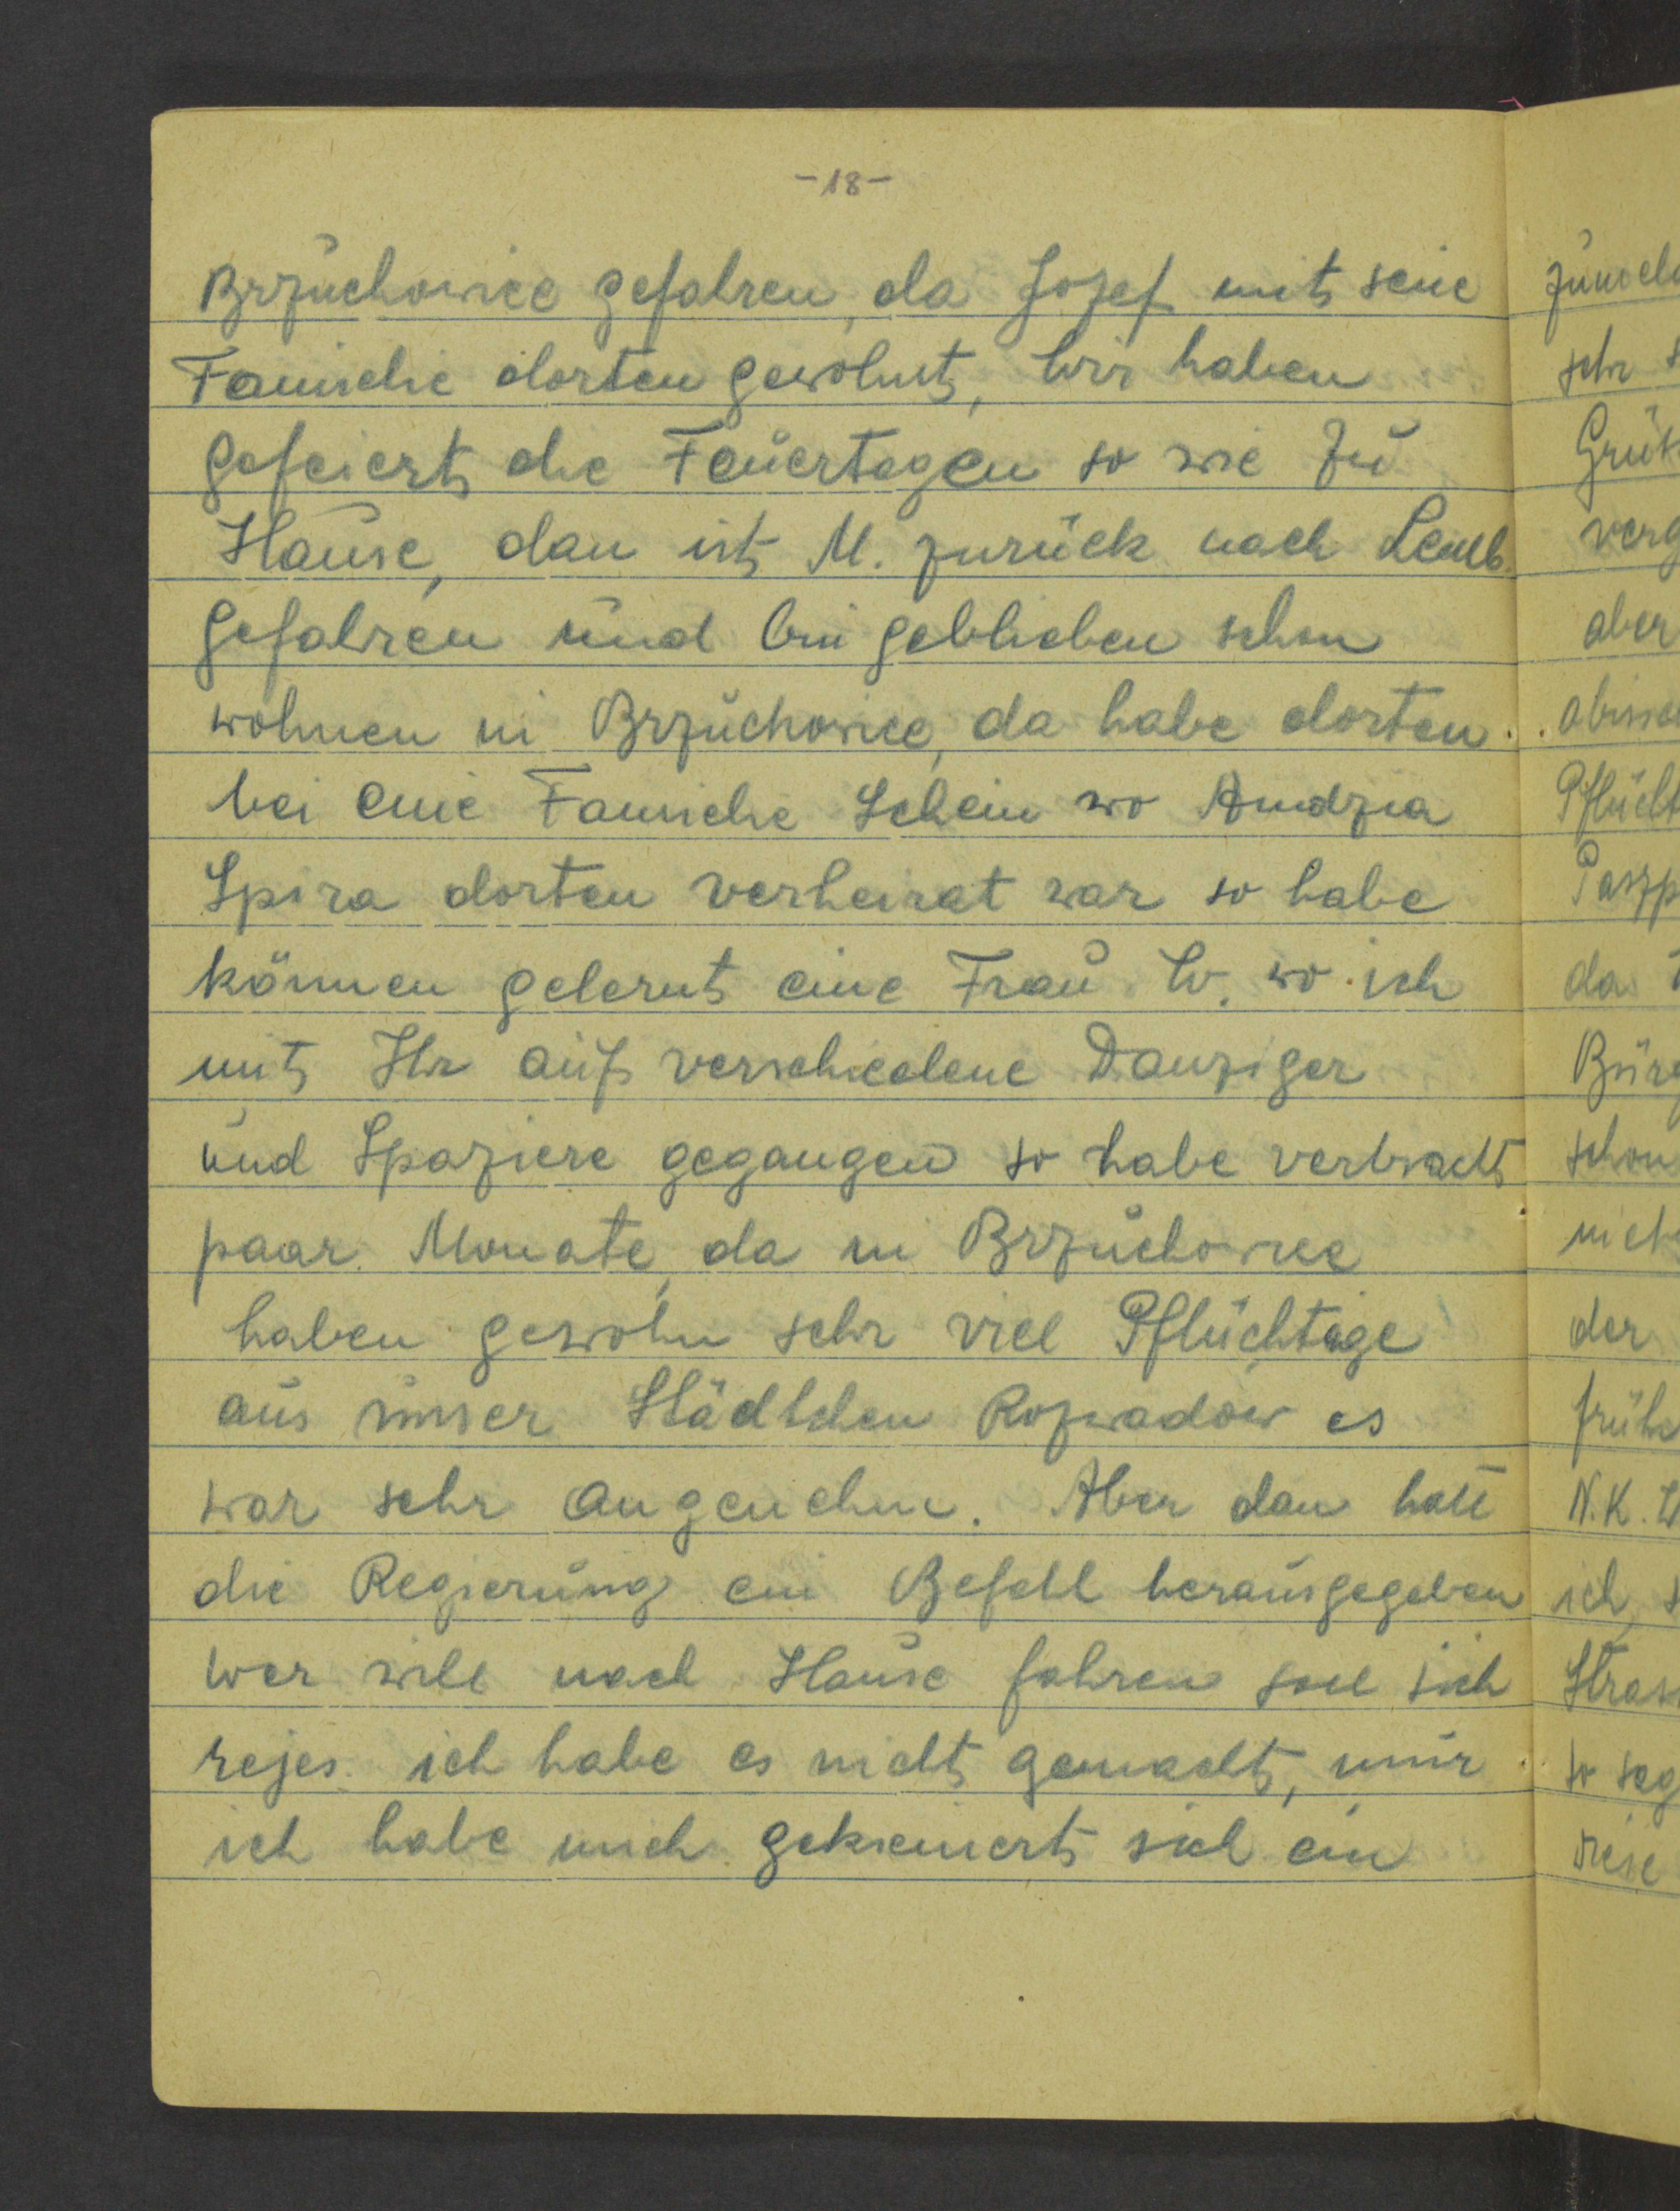 -18-
Brzuchowice gefahren, da Jozef mit seie
Familie dorten gewohnt, Wir haben
gefeiert die Feuertagen so wie zu
Hause, dan ist M. zurück nach Lemb.
gefahren und bin geblieben schon
wohnen in Brzuchowice, da habe dorten
bei eine Familie Schein wo Andzia
Spira dorten verheirat war so habe
können gelernt eine Frau W. wo ich
mit Ihr auf verschiedene Danziger
und Spaziere gegangen so habe verbracht
paar Monate, da in Brzuchowice
haben gewohn sehr viel Pflüchtige
aus unser Städtchen Rozwadow es
war sehr angenehm. Aber dan hatt
die Regierung ein Befehl herausgegeben
wer will nach Hause fahren soll sich
rejes. ich habe es nicht gemacht, nur
ich habe mich gekiemert sich ein
sehr
verg
aber
da
schon
der
N.K. W
ich, s
so sag
diese